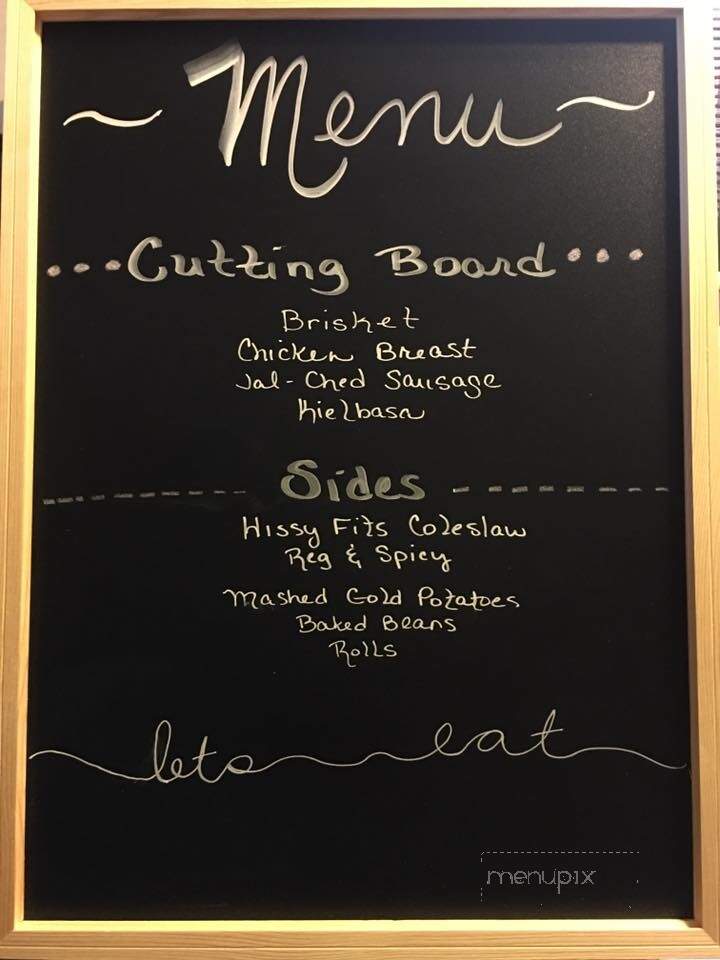 ~ Menu ~
...Cutting Board...
Brisket
Chicken Breast
Jal-Ched Sausage
Kielbasa
Sides
Hissy Fits Coleslaw
Reg & Spicy
Mashed Gold Potatoes
Baked Beans
Rolls
lets eat
menupix